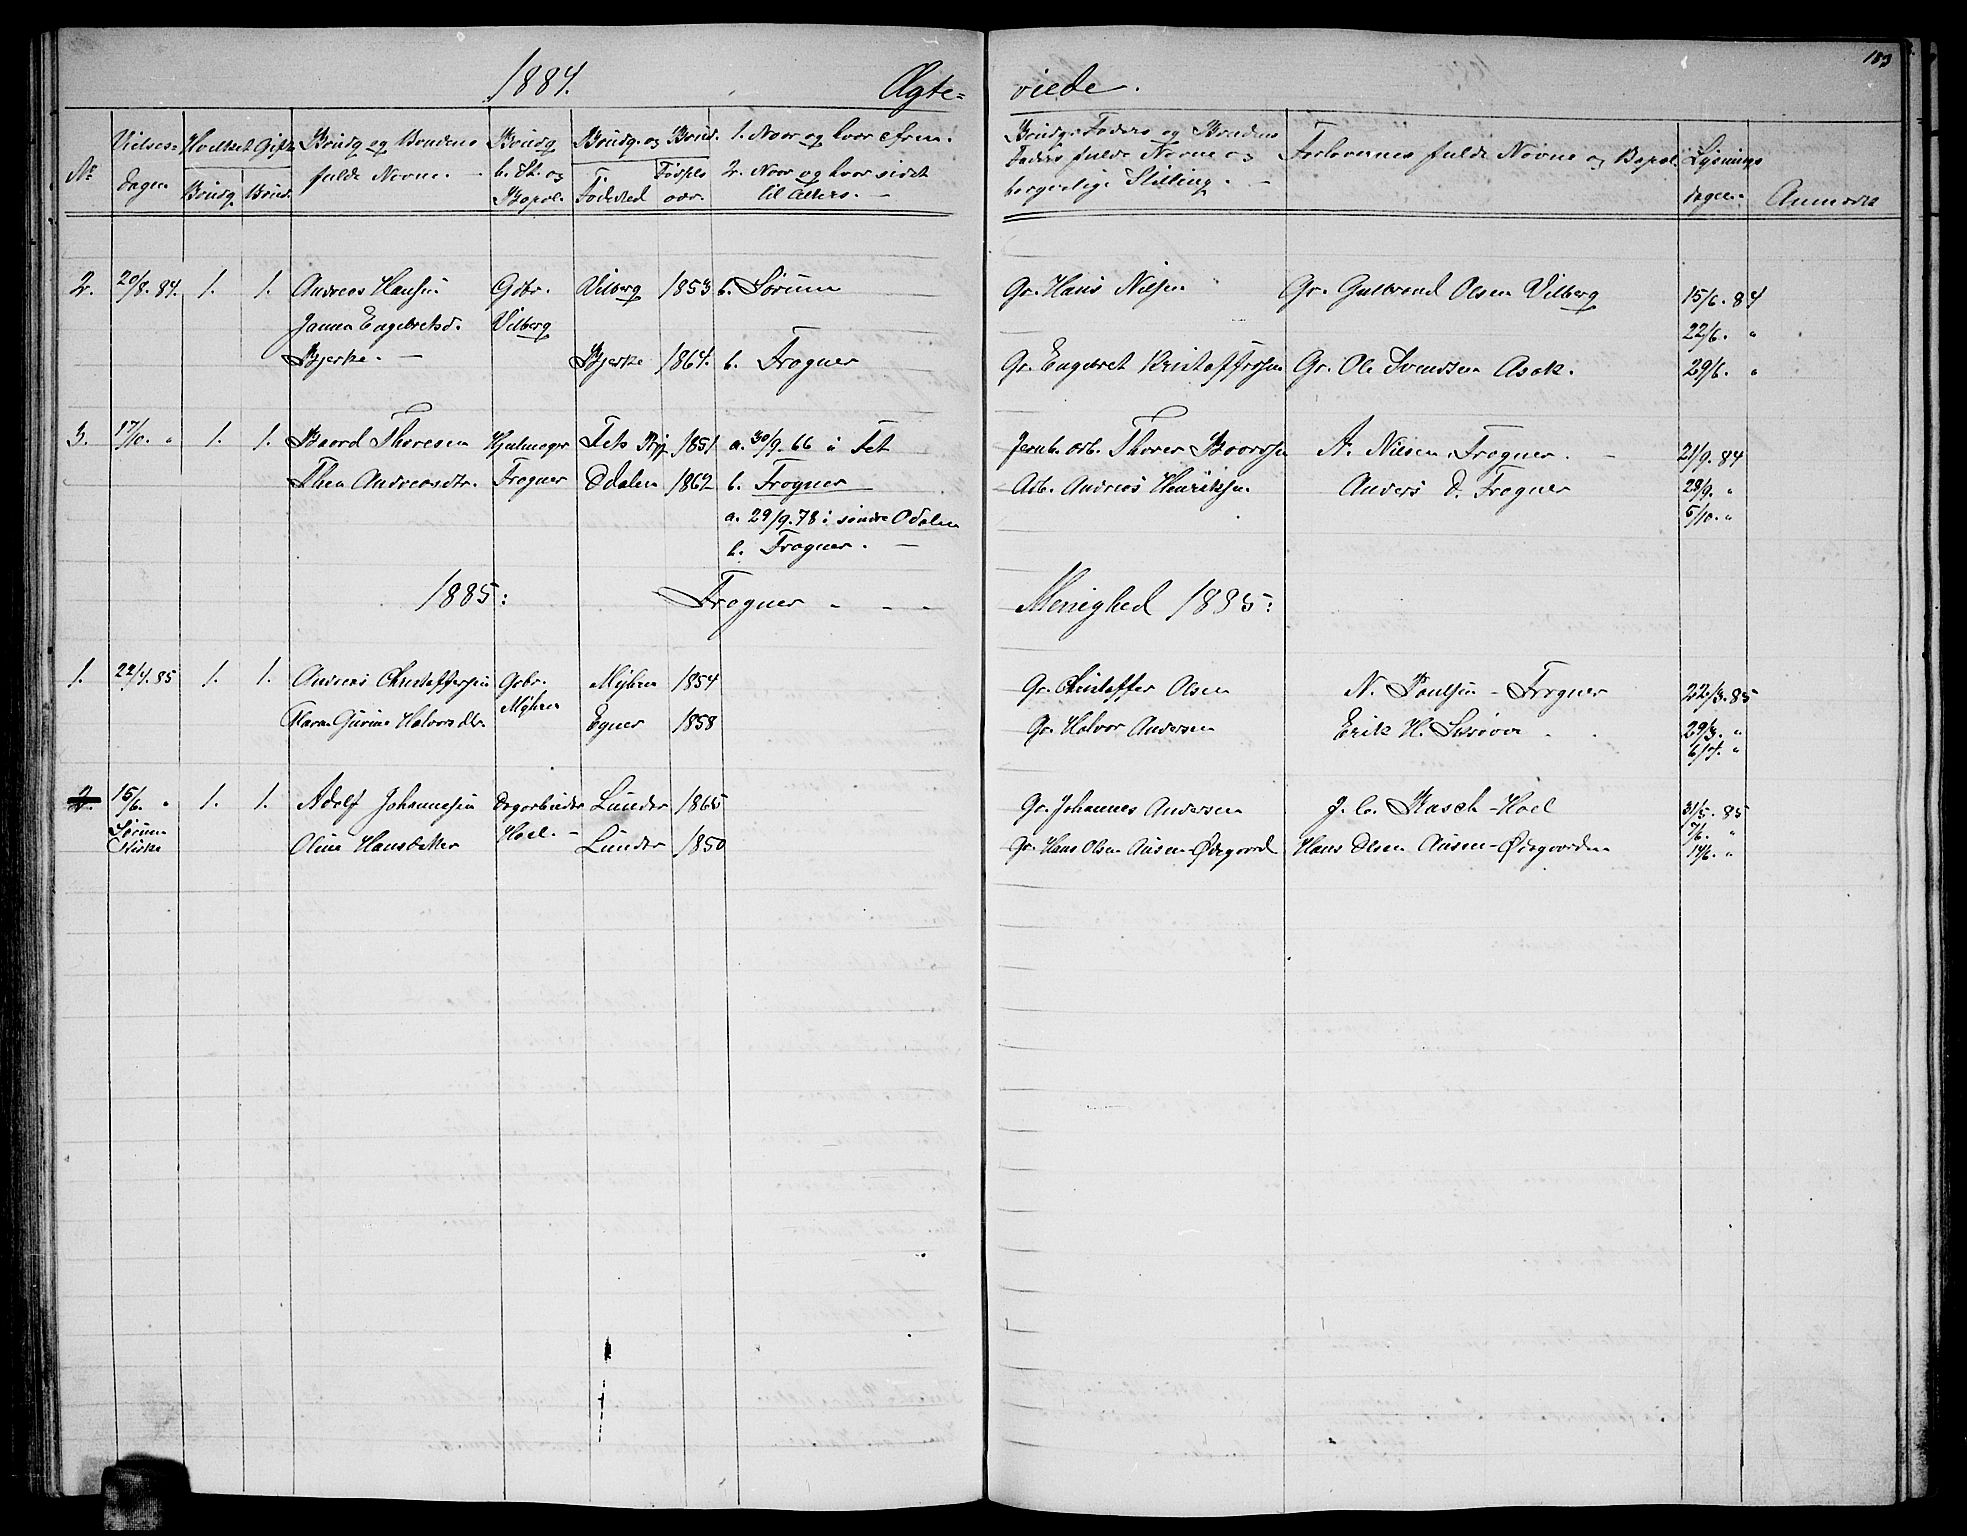 183
1884. Ægte= viede.
No Vielses= dagen Hvilket Gifte Brudg. Brud. Brudg. og Brudens fulde Navne. Brudg. b. St. og Bopæl. Brudg. og Brud. Fødested Fødsels aar. 1. Naar og hvor 2. Naar og hvor sidst til Alters. Brudg. Faders og Brudens Faders fulde Navne og borgerlige Stilling. Forlovernes fulde Navne og Bopæl Lysnings dagen
2. 20/8. 84. 1. 1. Andreas Hansen Gbr. Vilberg 1853 b. Sørum Gr. Hans Nilsen Gr. Gulbrand Olsen Vilberg 15/6. 84
Janna Engebretsd. Vilberg 22/6. "
Bjerke. Bjerke 1864. b. Frogner Gr. Engebret Kristoffersen Gr. Ole Svendsen Asak. 29/6. "
3. 17/10. " 1. 1. Baard Thoresen Hjulmager Fets 1851 a. 30/9. 66 i Fet Jernb. arb. Thorer Baardsen A. Nilsen Frogner. 21/9. 84
Thea Andreasdtr. Frogner Odalen 1862 b. Frogner Arb. Andreas Henriksen Anders D. Frogner 28/9. "
a. 29/9. 78 i søndre Odalen 5/10. "
b. Frogner.
1885: Frogner Menighed 1885:
1. 22/4. 85 1. 1. Andreas Christoffersen Gbr. Myhren 1854 Gr. Christoffer Olsen N. Paulsen - Frogner 22/3. 85
Gurine Halvorsdtr Myhren Egner 1858 Gr. Halvor Andersen Erik H. 29/3. "
6/4. "
2. 15/6. " 1. 1. Adolf Johannesen Dagarbeider Lunder 1865 Gr. Johannes Andersen J. C. Rasch - Hoel 31/5. 85
Sørum Kirke Oline Hansdatter Hoel. Lunder 1850 Gr. Hans Olsen Ausen-Ødegaard Hans Olsen Ausen-Ødegaarden 7/6. "
14/6. "